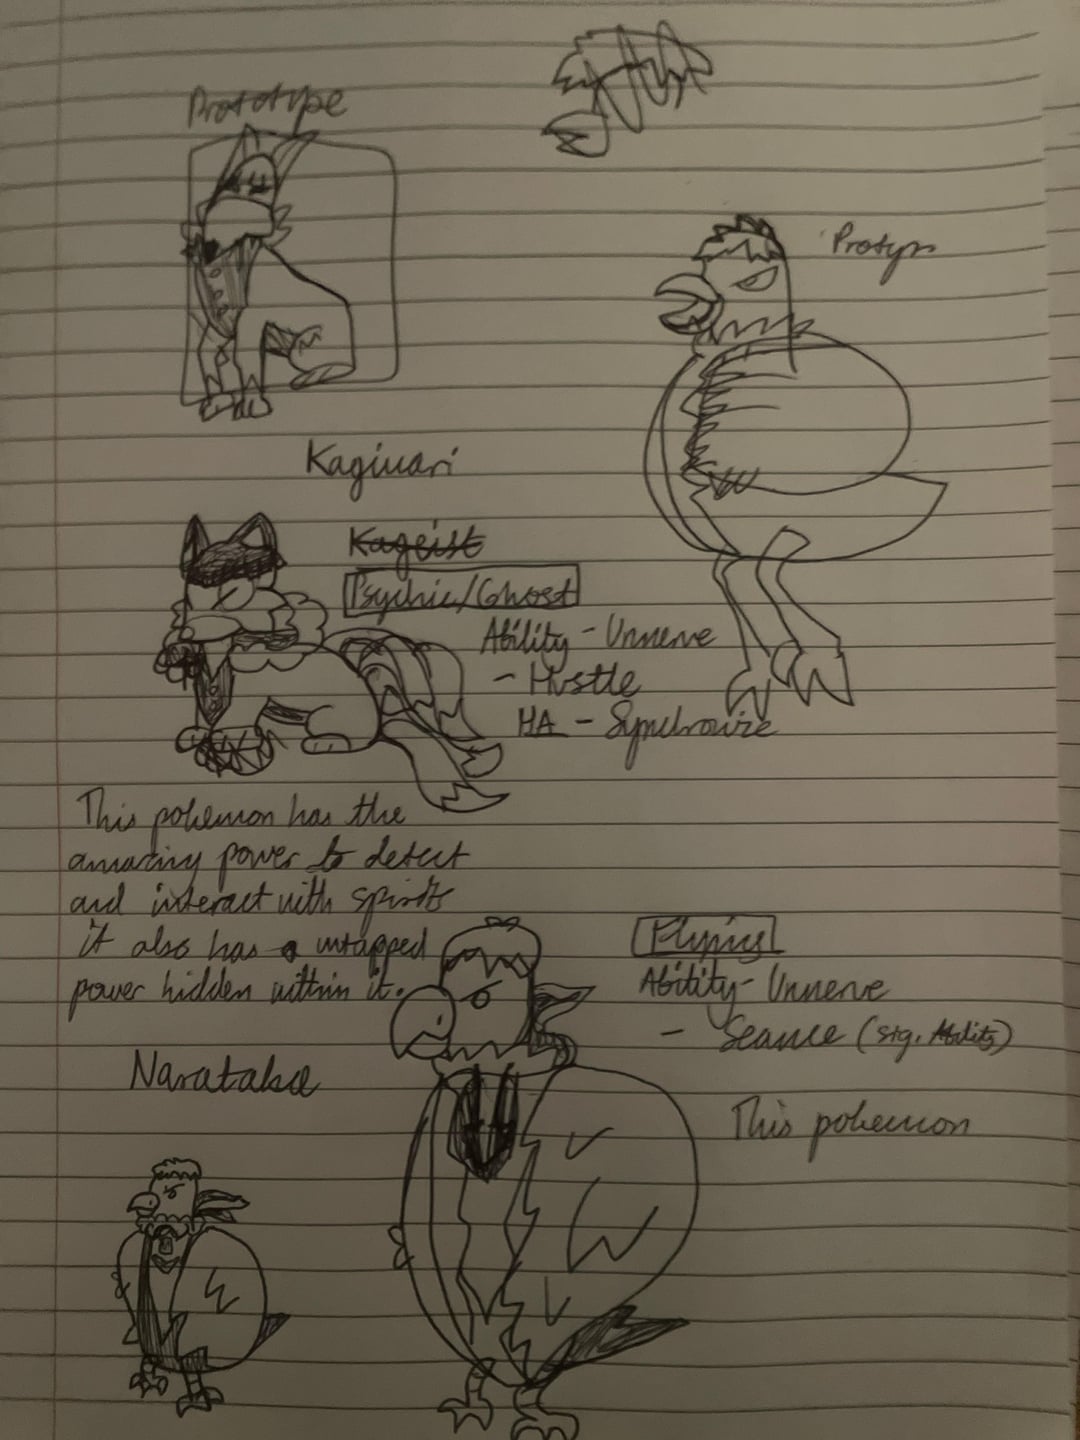 Prototype
Protyp
Kaginari
Kageist
Psychic/Ghost
Ability - Unnerve
- Hustle
HA - Synchronize
This pokemon has the
amazing power to detect
and interact with spirits
it also has a untapped
power hidden within it.
Flying
Ability - Unnerve
- Seance (sig. Ability)
Narataka
This pokemon